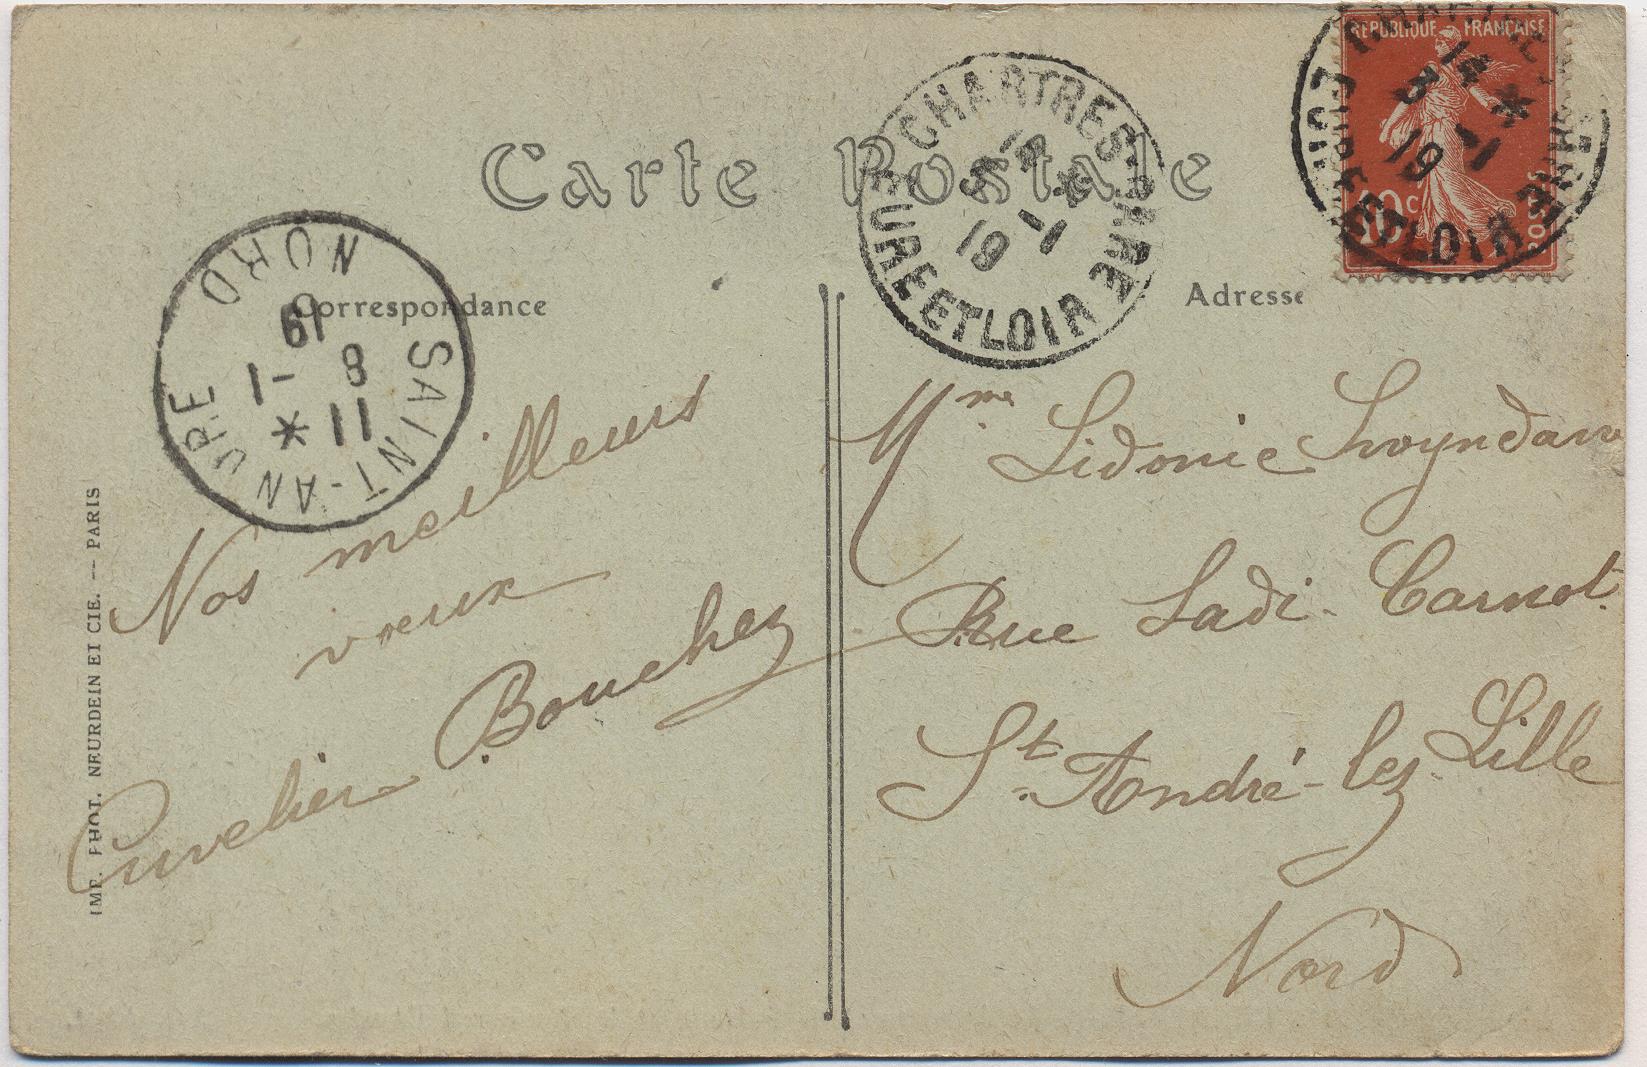 Carte Postale
Correspondance
Adresse
REPUBLIQUE FRANÇAISE
10c
POSTES
CHARTRES GARE
14 *
3 -1
19
EURE ET LOIR
CHARTRES GARE
14 *
3 -1
19
EURE ET LOIR
SAINT-ANDRE
11 *
8 -1
19
NORD
Nos meilleurs
vœux
Cuvelier Bouchez
Mme Sidonie
Rue Sadi-Carnot.
St. André-lez-Lille
Nord
IMP. PHOT. NEURDEIN ET CIE. — PARIS